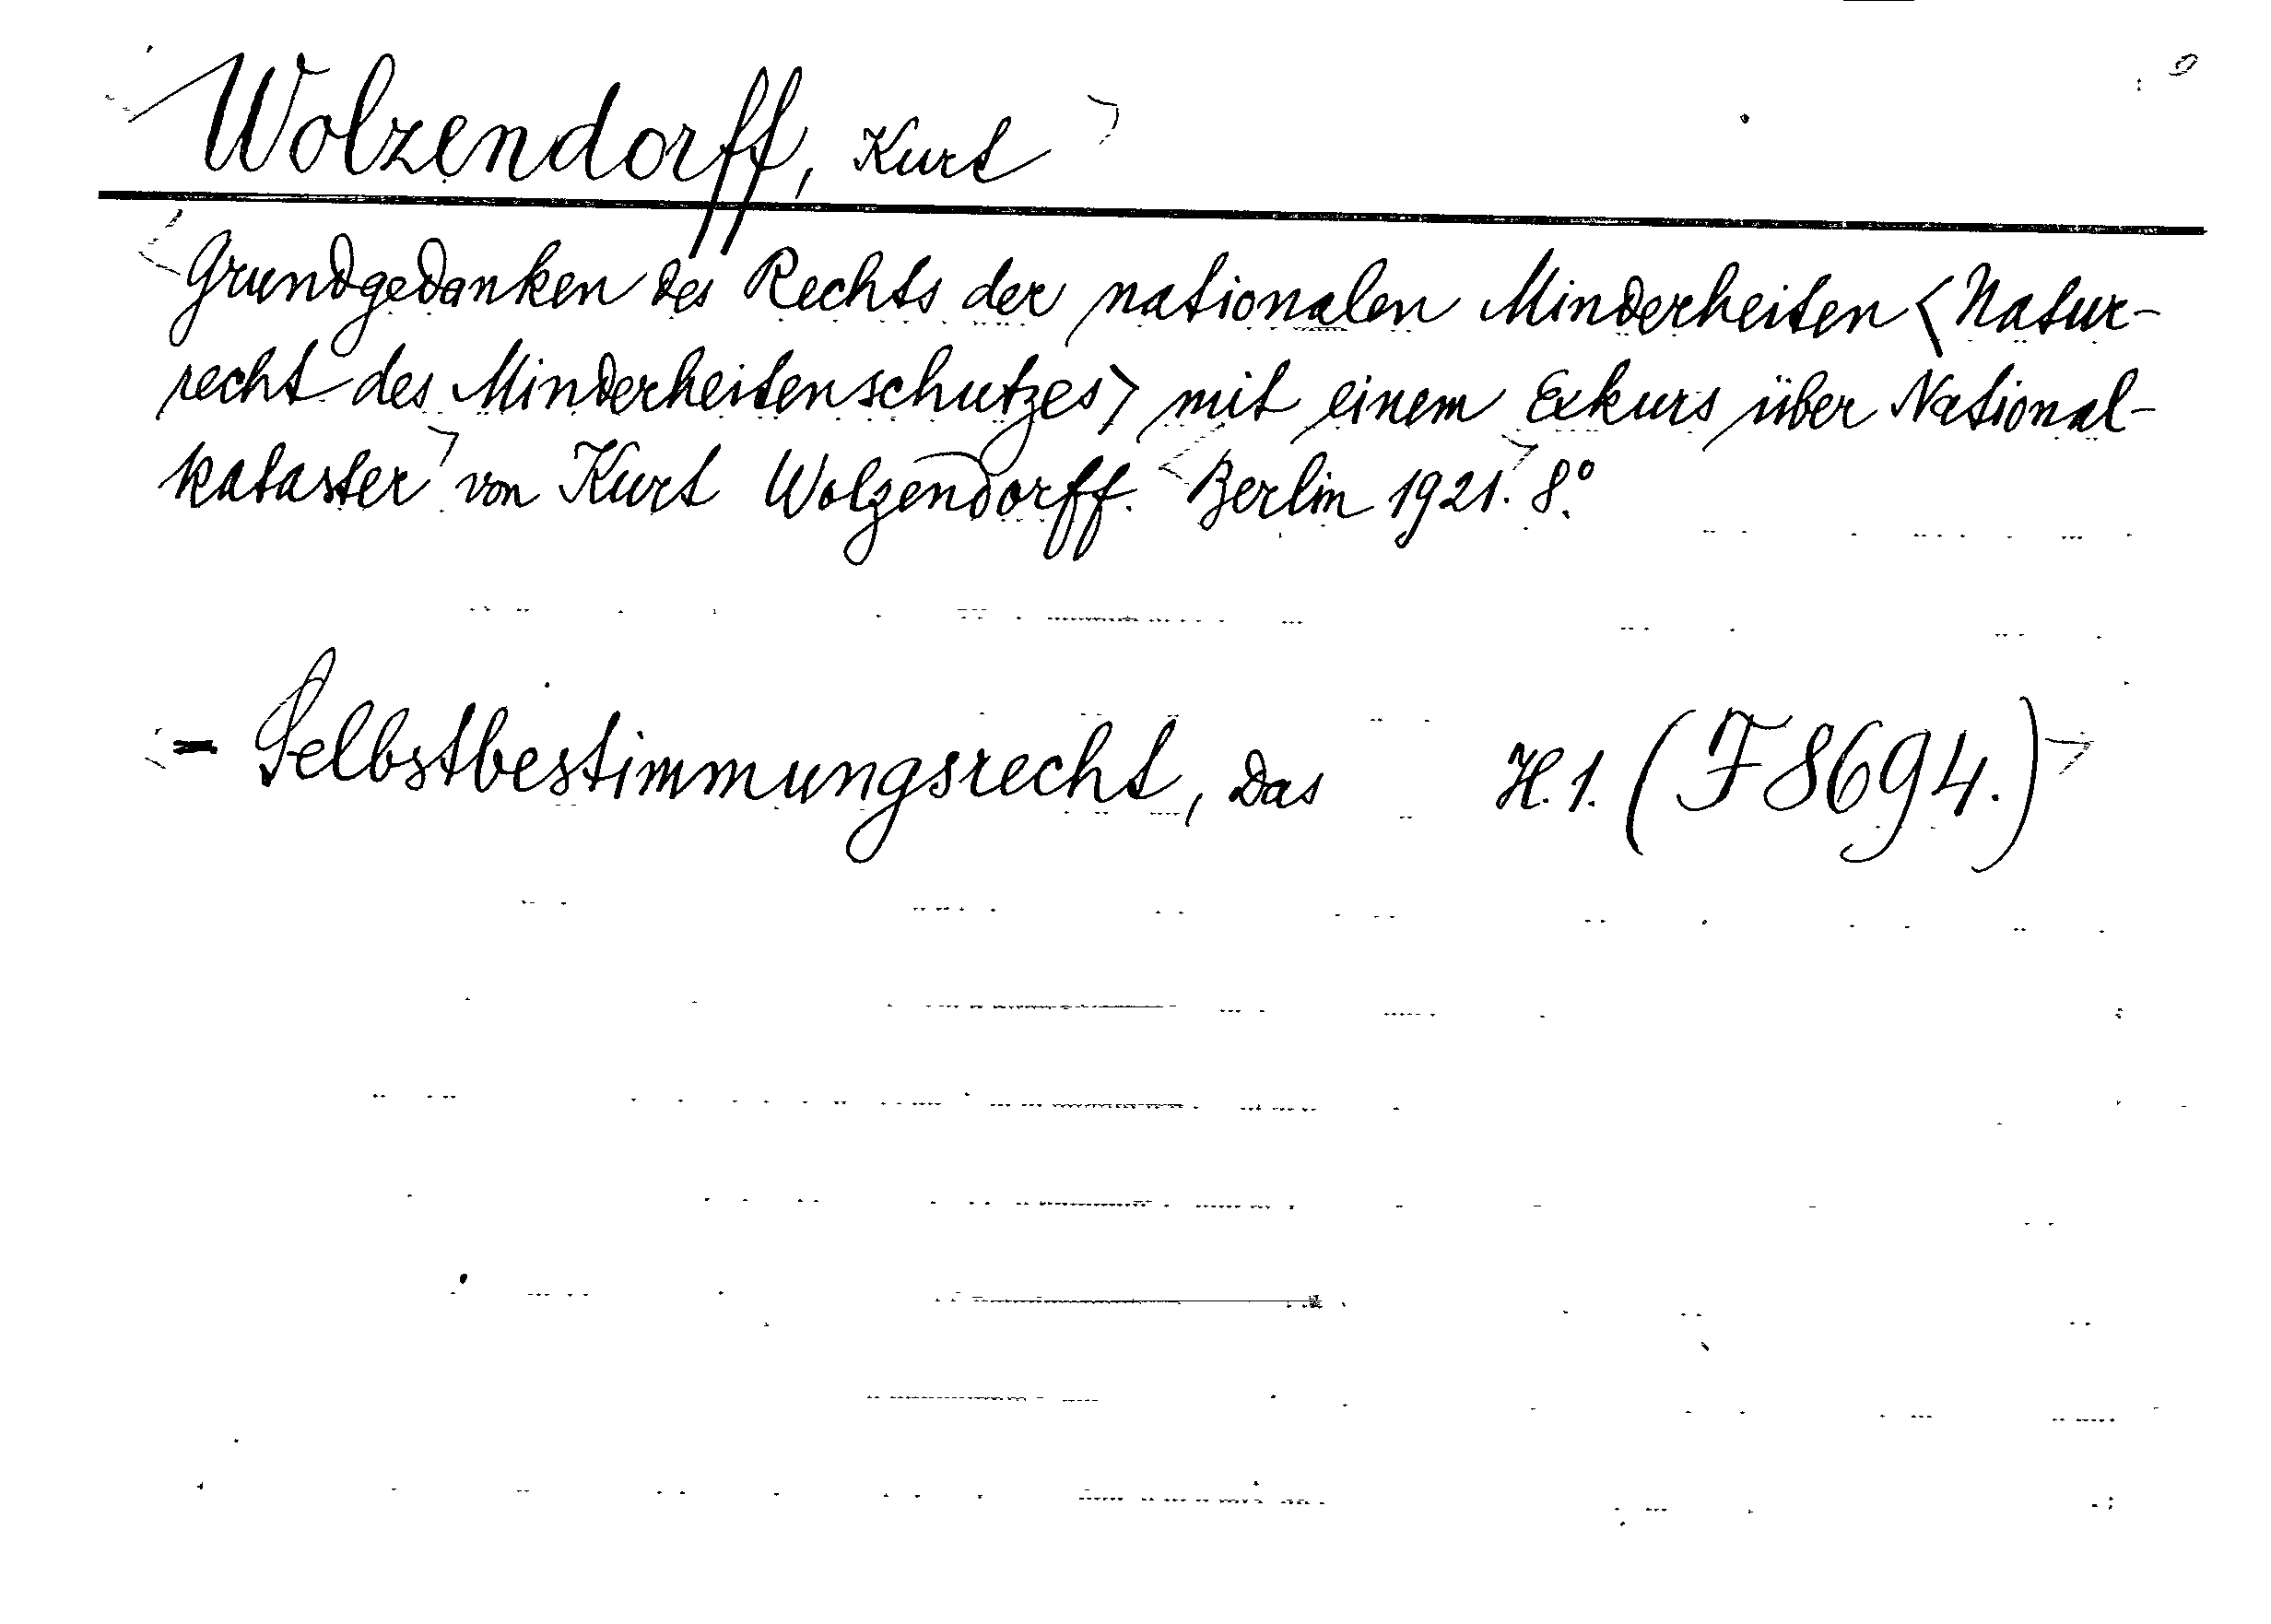 Wolzendorff, Kurt
Grundgedanken des Rechts der nationalen Minderheiten <Natur-
recht des Minderheitenschutzes> mit einem Exkurs über National-
kataster von Kurt Wolzendorff. Berlin 1921. 8.°
- Selbstbestimmungsrecht, Das H. 1. (F 8694.)